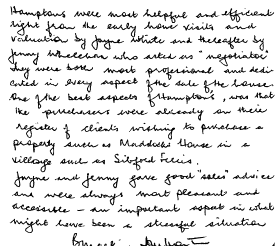 Hamptons were most helpful and efficient
right from the early home visits and
valuation by Jayne White and thereafter by
Jenny Wheelehan who acted as "negotiator"
They were both most professional and dedi-
cated in every aspect of the sale of the house.
One of the best aspects of Hamptons, was that
the purchasers were already on their
register of clients wishing to purchase a
property such as Maddocks House in a
village such as Sibford Ferris.
Jayne and Jenny gave good "sales" advice
and were always most pleasant and
accessible - an important aspect in what
might have been a stressful situation